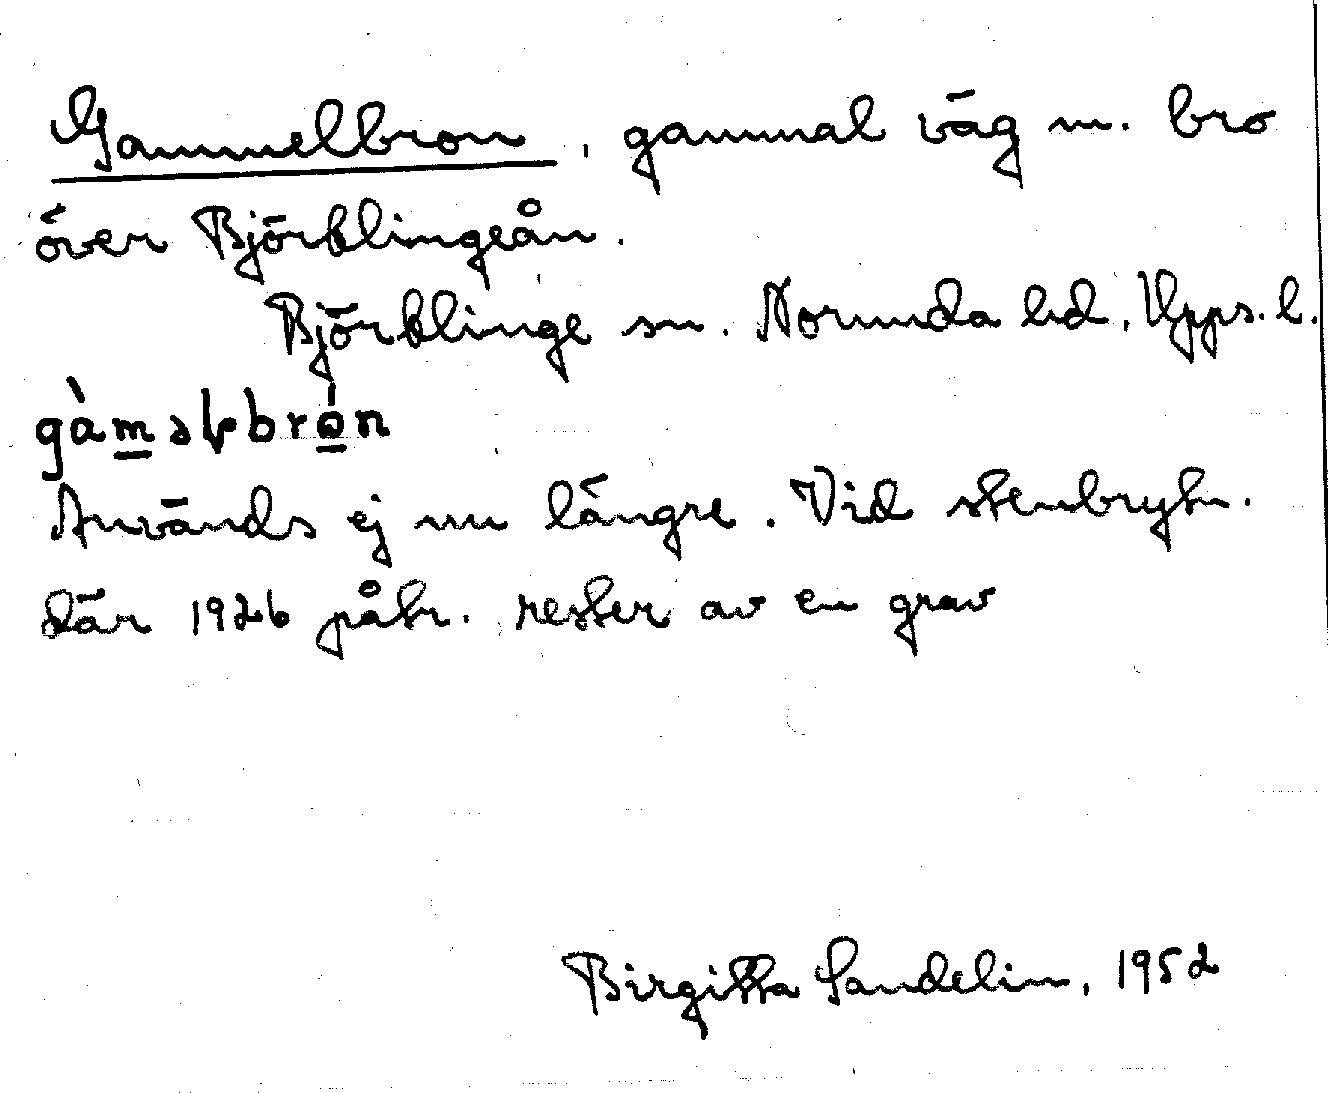 Gammelbron, gammal väg m. bro
över Björklingeån.
Björklinge sn. Norunda hd, Upps. l.
gàməlbrón
Används ej nu längre. Vid stenbrytn.
där 1926 påtr. rester av en grav
Birgitta Sandelin, 1952